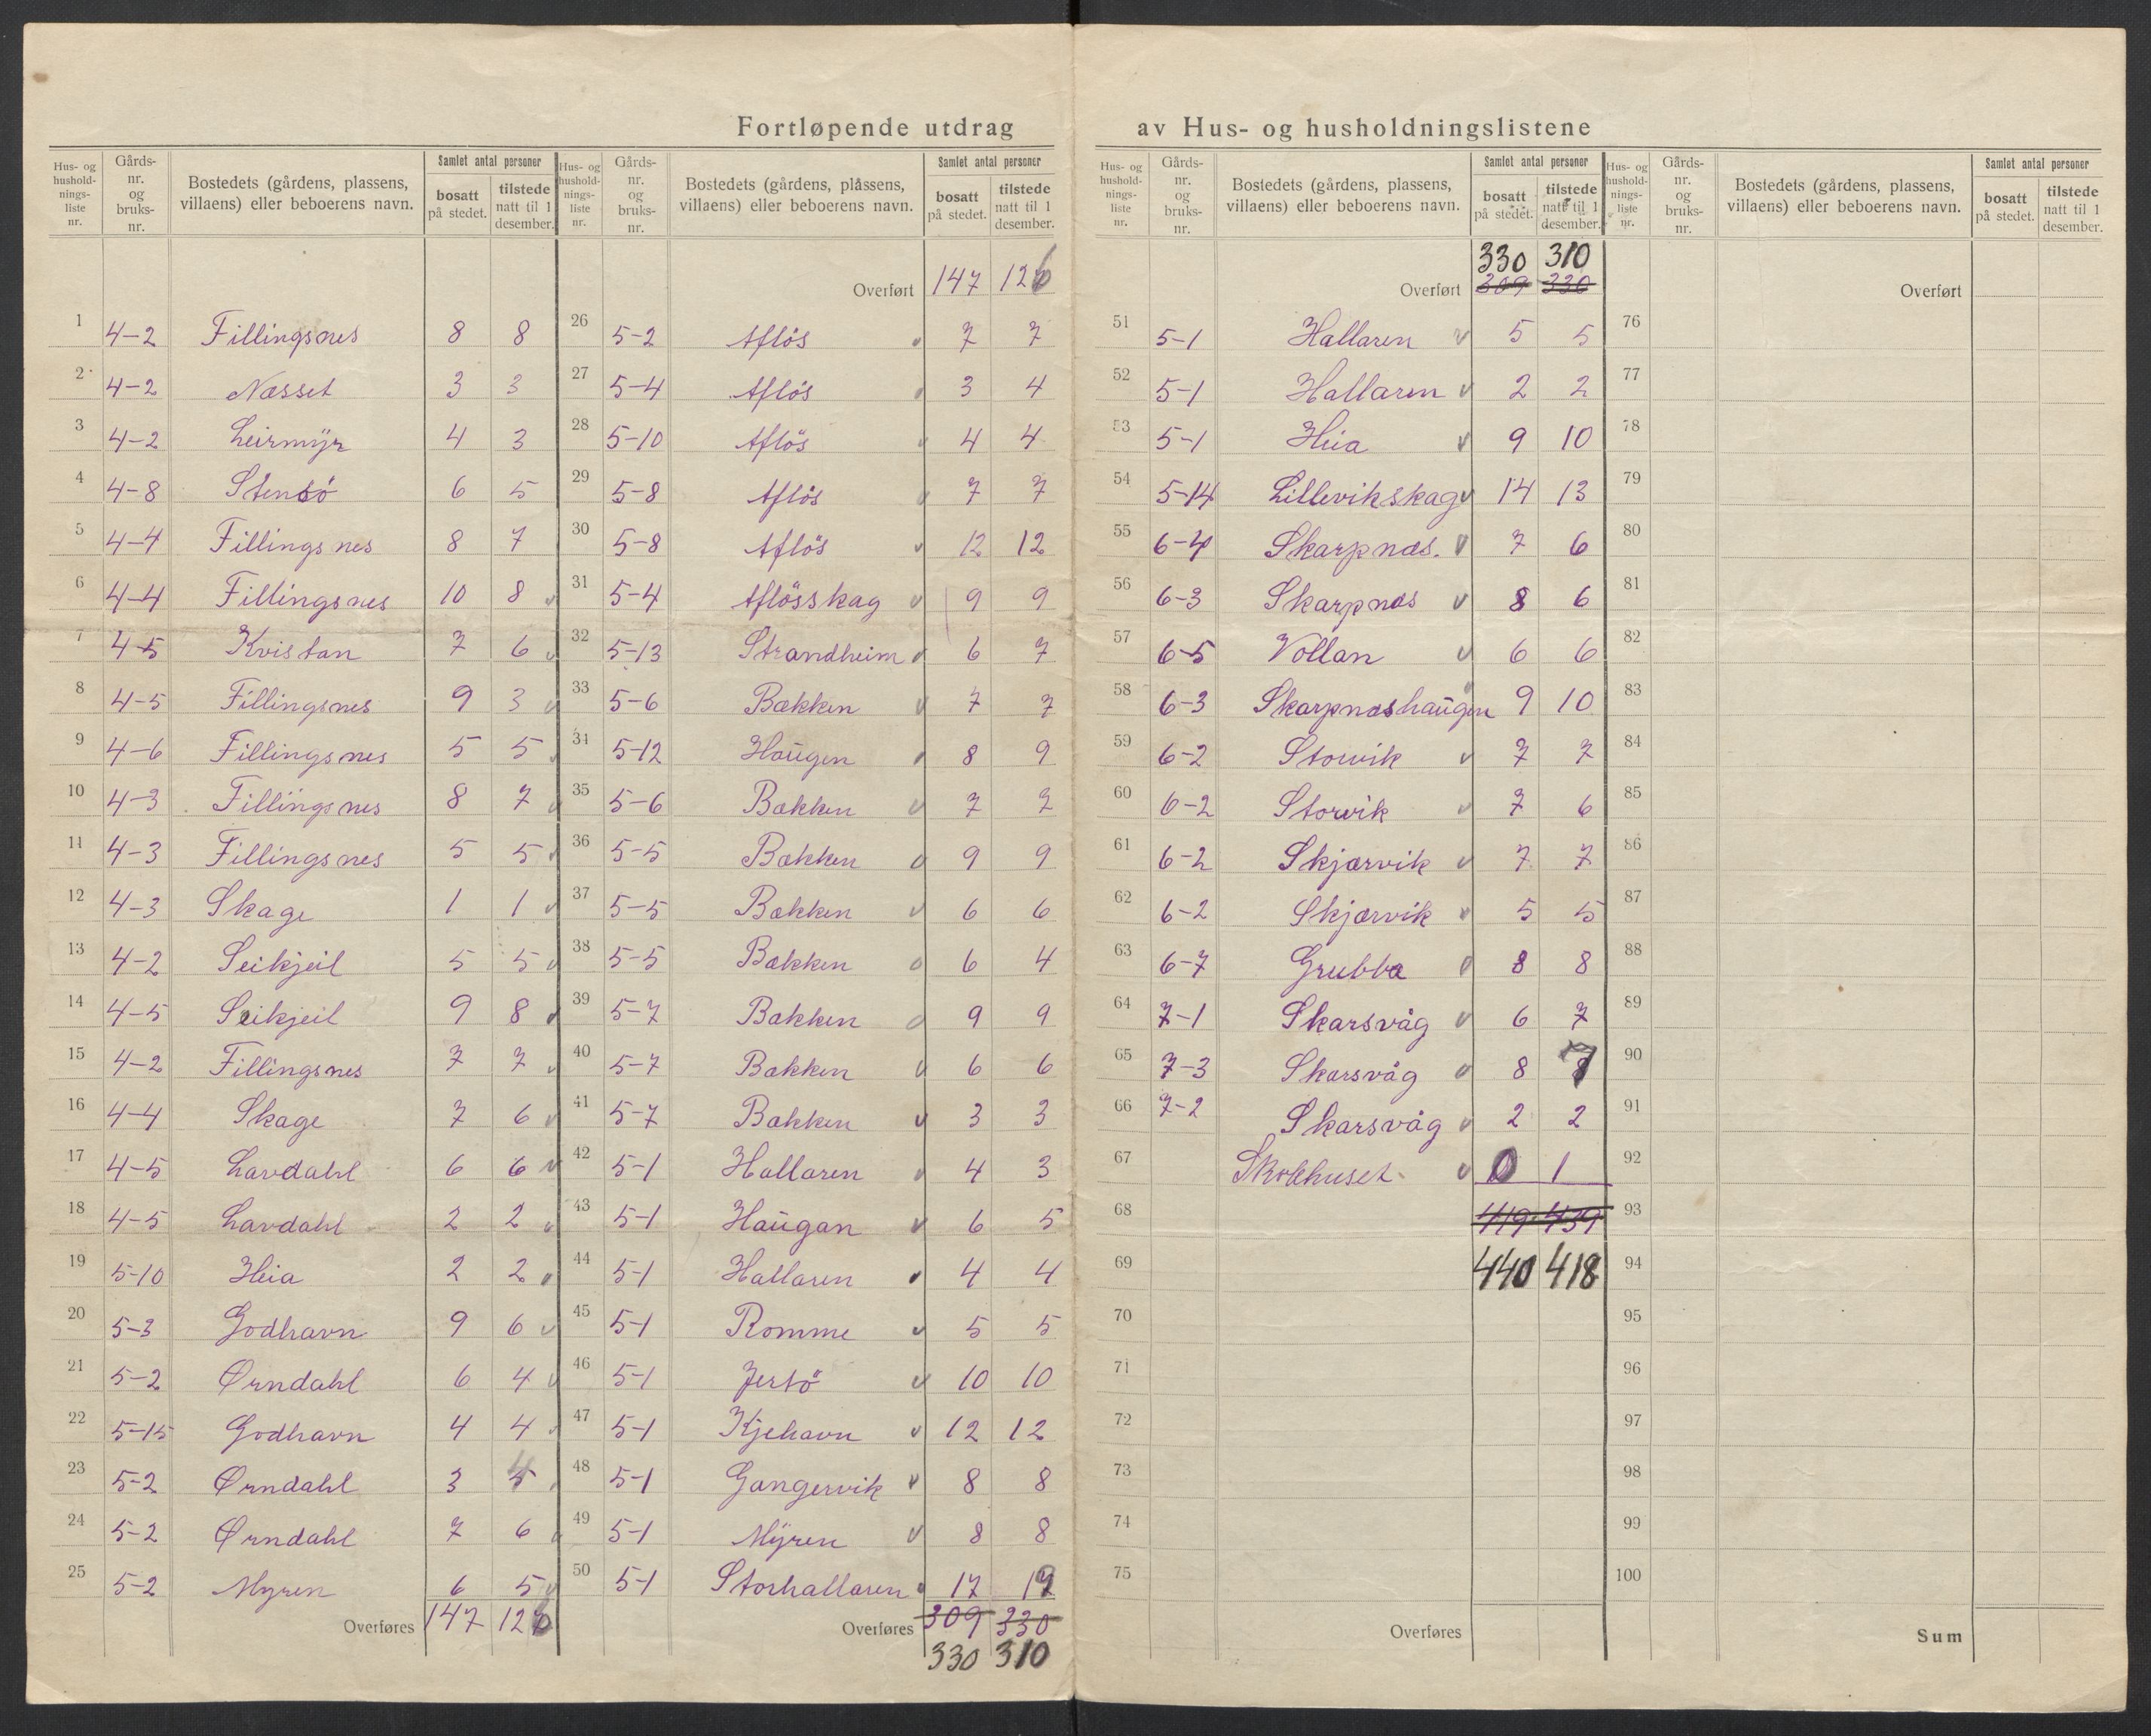 Fortløpende utdrag av Hus- og husholdningslistene
Hus- og hushold- nings- liste nr. | Gårds- nr. og bruks- nr. | Bostedets (gårdens, plassens, villaens) eller beboerens navn. | Samlet antal personer | bosatt på stedet. | tilstede natt til 1 desember.
1 4-2 Fillingsnes 8 8
2 4-2 Næsset 3 3
3 4-2 Leirmyr 4 3
4 4-8 Stensö 6 5
5 4-4 Fillingsnes 8 7
6 4-4 Fillingsnes 10 8
7 4-5 Kvistan 7 6
8 4-5 Fillingsnes 9 3
9 4-6 Fillingsnes 5 5
10 4-3 Fillingsnes 8 7
11 4-3 Fillingsnes 5 5
12 4-3 Skage 1 1
13 4-2 Seikjeil 5 5
14 4-5 Seikjeil 9 8
15 4-2 Fillingsnes 7 7
16 4-4 Skage 7 6
17 4-5 Lavdahl 6 6
18 4-5 Lavdahl 2 2
19 5-10 Heia 2 2
20 5-3 Godhavn 9 6
21 5-2 Ørndahl 6 4
22 5-15 Godhavn 4 4
23 5-2 Ørndahl 3 4
24 5-2 Ørndahl 7 6
25 5-2 Myren 6 5
Overføres 147 126
Hus- og hushold- nings- liste nr. | Gårds- nr. og bruks- nr. | Bostedets (gårdens, plassens, villaens) eller beboerens navn. | Samlet antal personer | bosatt på stedet. | tilstede natt til 1 desember.
Overført 147 126
26 5-2 Aflös 7 7
27 5-4 Aflös 3 4
28 5-10 Aflös 4 4
29 5-8 Aflös 7 7
30 5-8 Aflös 12 12
31 5-4 Aflösskag 9 9
32 5-13 Strandheim 6 7
33 5-6 Bækken 7 7
34 5-12 Haugen 8 9
35 5-6 Bækken 7 7
36 5-5 Bækken 9 9
37 5-5 Bækken 6 6
38 5-5 Bækken 6 4
39 5-7 Bakken 9 9
40 5-7 Bakken 6 6
41 5-7 Bakken 3 3
42 5-1 Hallaren 4 3
43 5-1 Haugan 6 5
44 5-1 Hallaren 4 4
45 5-1 Romme 5 5
46 5-1 Jertö 10 10
47 5-1 Kjehavn 12 12
48 5-1 Gangervik 8 8
49 5-1 Myren 8 8
50 5-1 Storhallaren 17
Overføres 309 330
330 310
Hus- og hushold- nings- liste nr. | Gårds- nr. og bruks- nr. | Bostedets (gårdens, plassens, villaens) eller beboerens navn. | Samlet antal personer | bosatt på stedet. | tilstede natt til 1 desember.
330 310
Overført 309 330
51 5-1 Hallaren 5 5
52 5-1 Hallaren 2 2
53 5-1 Heia 9 10
54 5-14 Lillevikskag 14 13
55 6-4 Skarpnæs. 7 6
56 6-3 Skarpnæs 8 6
57 6-5 Vollan 6 6
58 6-3 Skarpnæshaugen 9 10
59 6-2 Storvik 7 7
60 6-2 Storvik 7 6
61 6-2 Skjærvik 7 7
62 6-2 Skjærvik 5 5
63 6-7 Grubba 8 8
64 7-1 Skarsvåg 6 7
65 7-3 Skarsvåg 8 7
66 7-2 Skarsvåg 2 2
67 Skolehuset 0 1
68 419 439
69 440 418
70
71
72
73
74
75
Overføres
Hus- og hushold- nings- liste nr. | Gårds- nr. og bruks- nr. | Bostedets (gårdens, plassens, villaens) eller beboerens navn. | Samlet antal personer | bosatt på stedet. | tilstede natt til 1 desember.
Overført
76
77
78
79
80
81
82
83
84
85
86
87
88
89
90
91
92
93
94
95
96
97
98
99
100
Sum